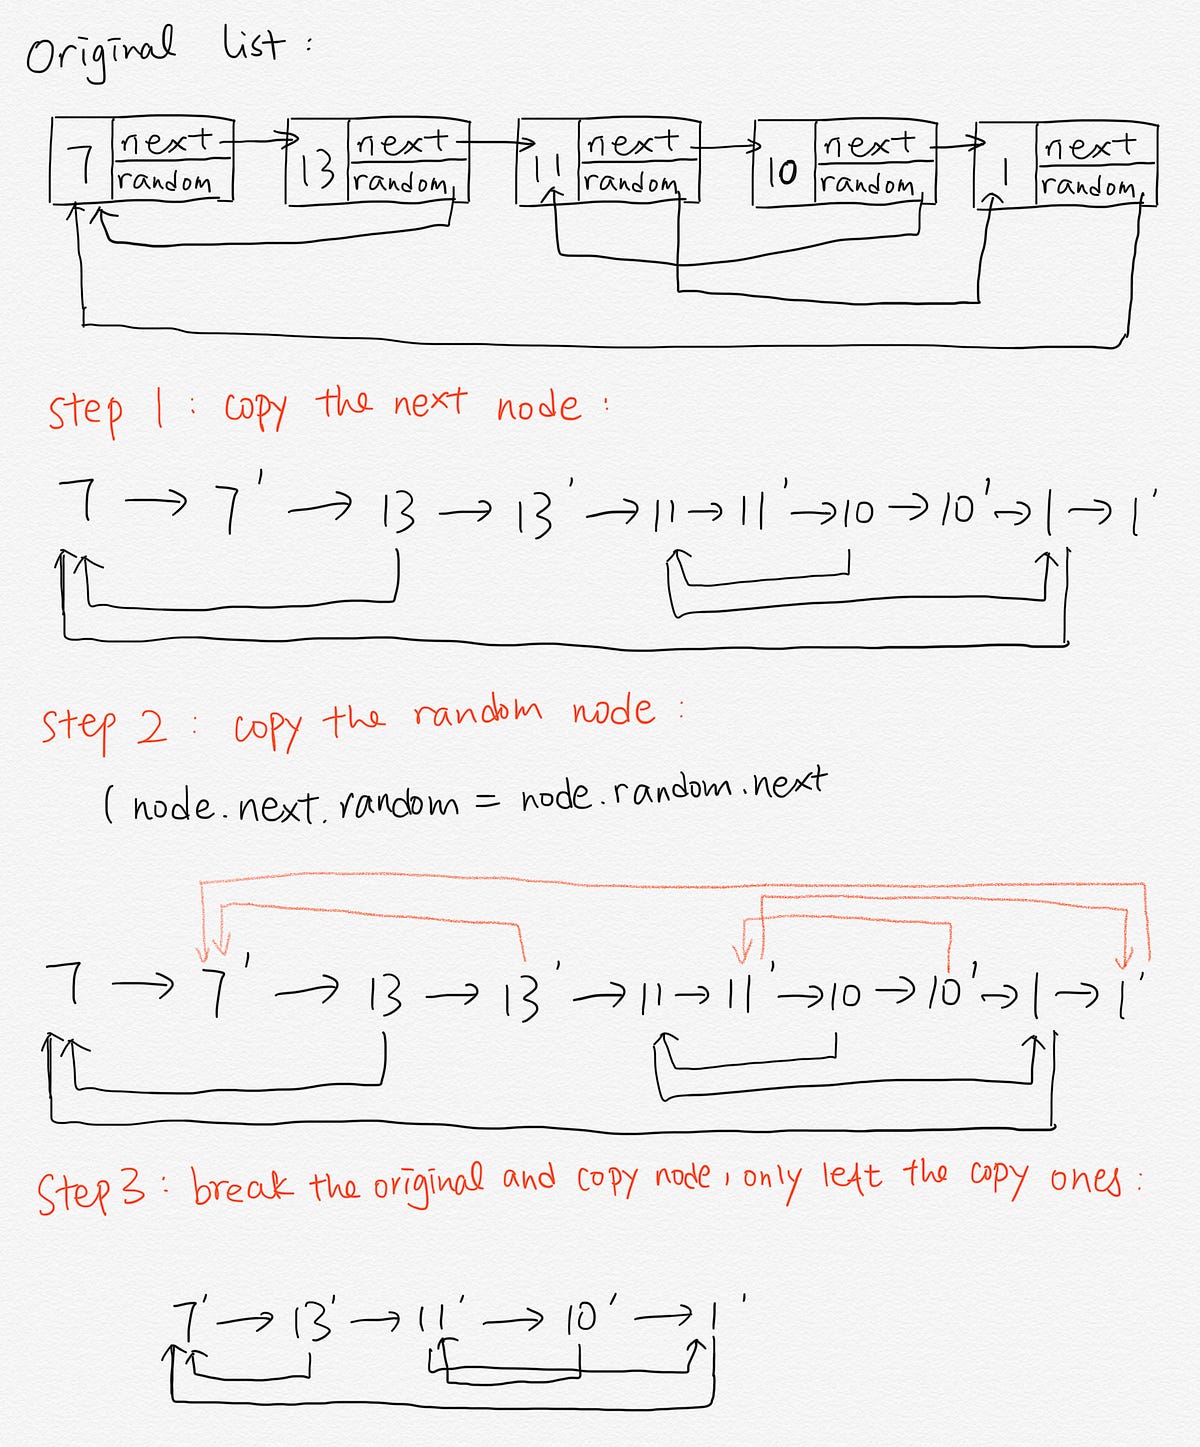 Original list:
7 next 13 next 11 next 10 next 1 next
random random random random random
Step 1: copy the next node:
7 → 7' → 13 → 13' → 11 → 11' → 10 → 10' → 1 → 1'
Step 2: copy the random node:
(node.next.random = node.random.next
7 → 7' → 13 → 13' → 11 → 11' → 10 → 10' → 1 → 1'
Step 3: break the original and copy node, only left the copy ones:
7' → 13' → 11' → 10' → 1'